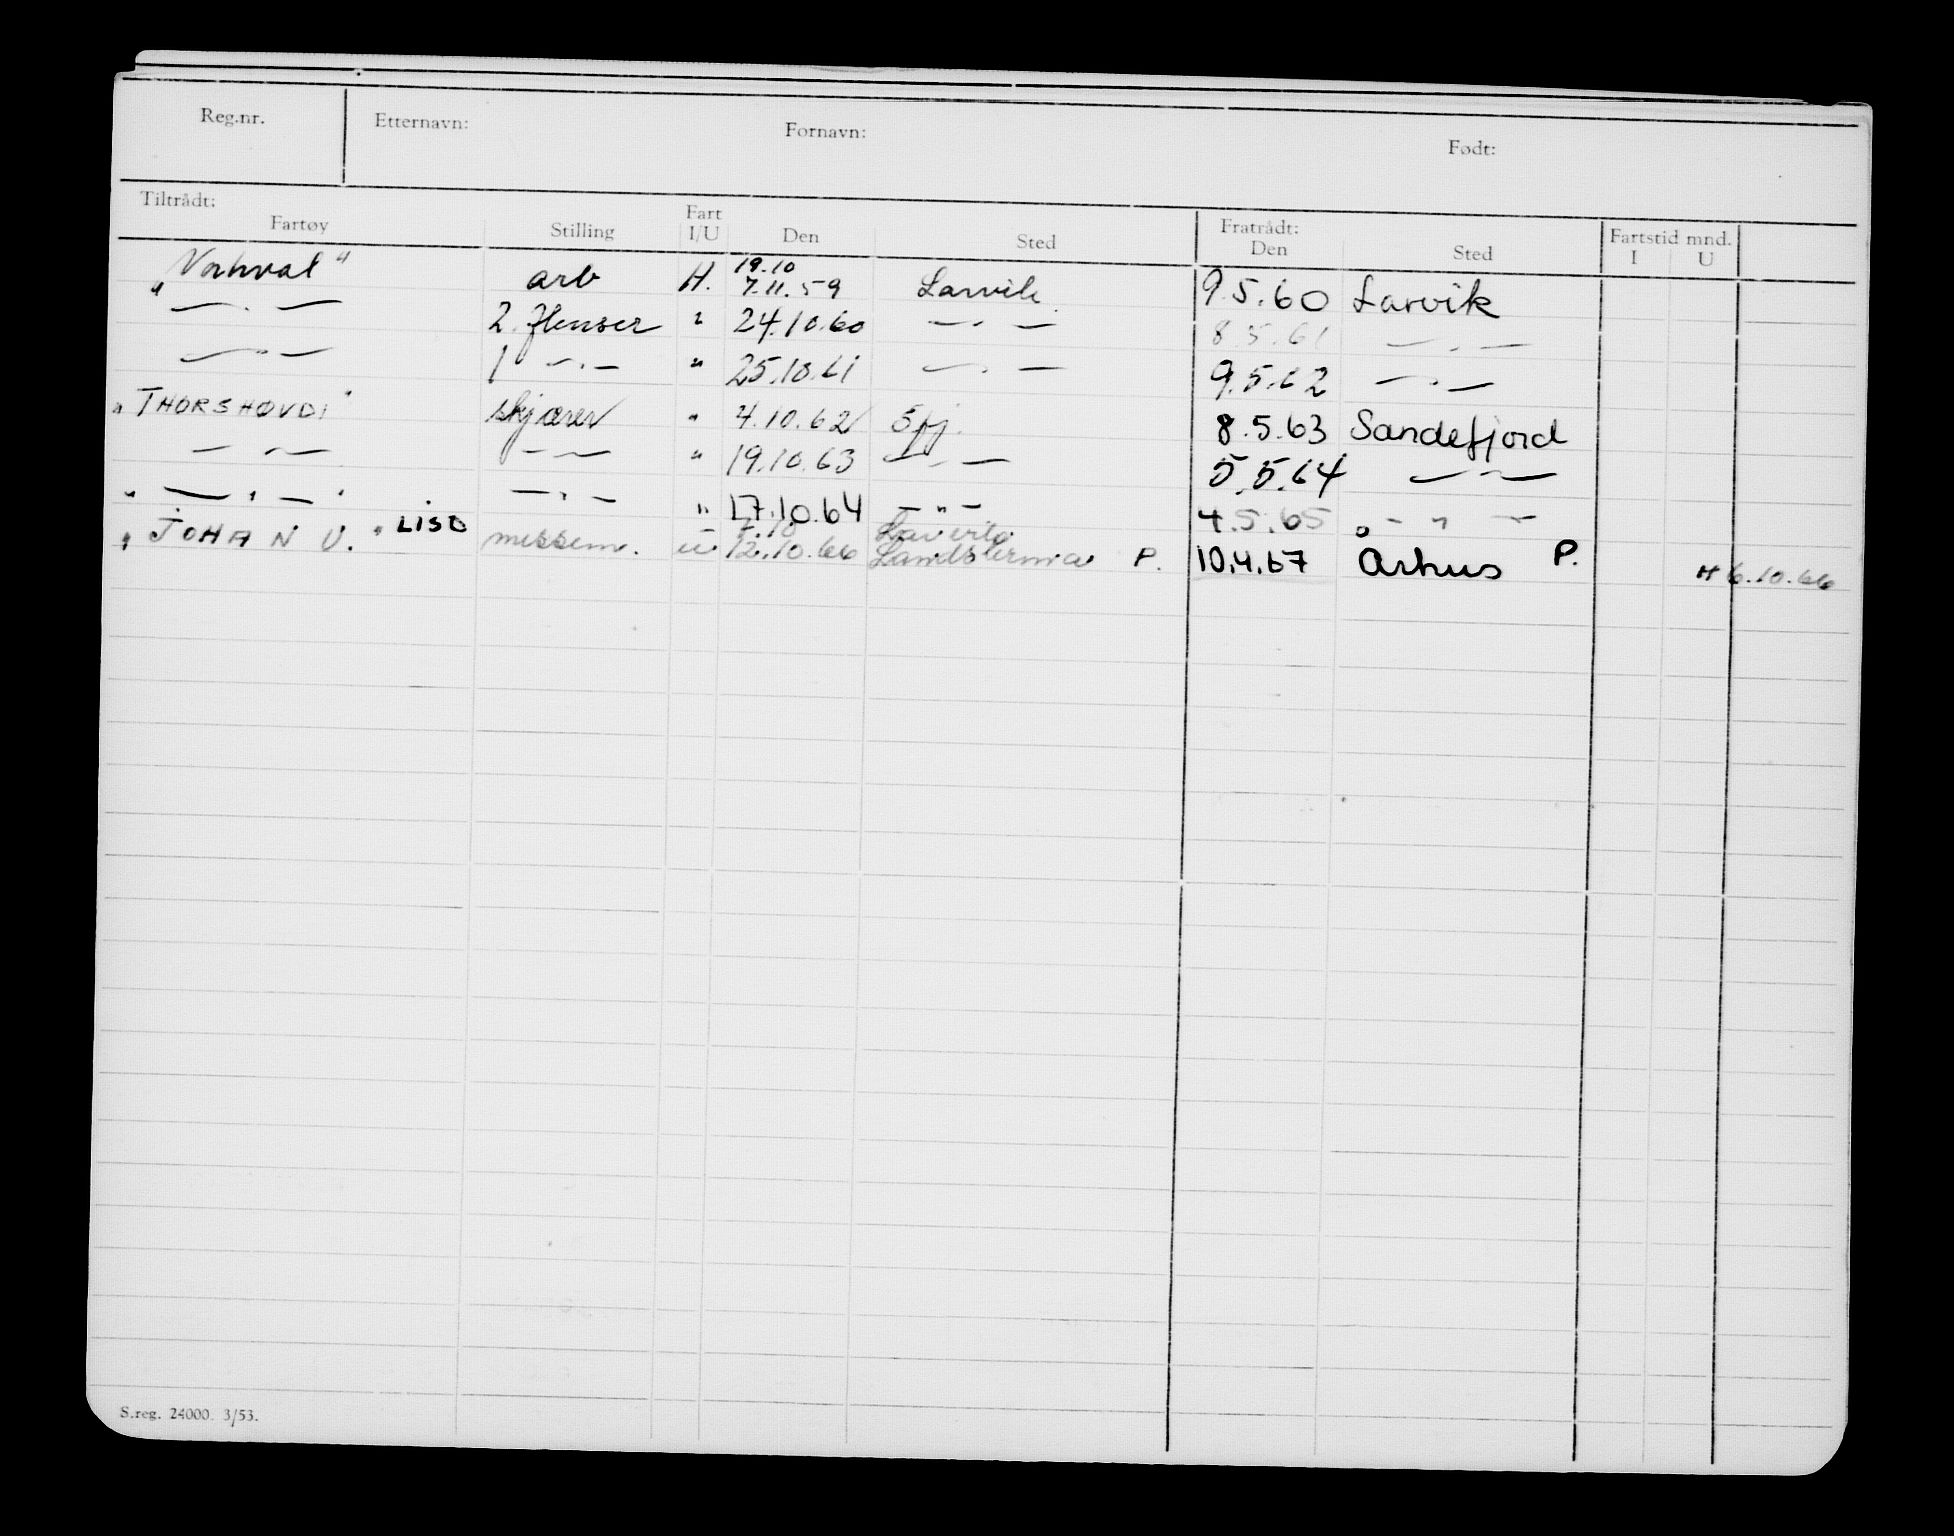 Reg.nr. Etternavn: Fornavn: Født:
Tiltrådt: Fratrådt: Fartstid mnd.
Fartøy Stilling Fart I/U Den Sted Den Sted I U
19.10
„Norhval" arb H. 7.11.59 Larvik 9.5.60 Larvik
— . — 2. flenser " 24.10.60 — . — 8.5.61 — . —
— " — 1 — . — " 25.10.61 — . — 9.5.62 — " —
"THORSHØVDI" skjærer " 4.10.62 Sfj. 8.5.63 Sandefjord
— " — — " — " 19.10.63 — " — 5.5.64 — " —
" — " — " — " — " 17.10.64 — " — 4.5.65 — " —
7.10
"JOHAN U." LISO messem. u 12.10.66 Landskrona P. 10.4.67 Århus P. H 6.10.66
S.reg. 24000. 3/53.